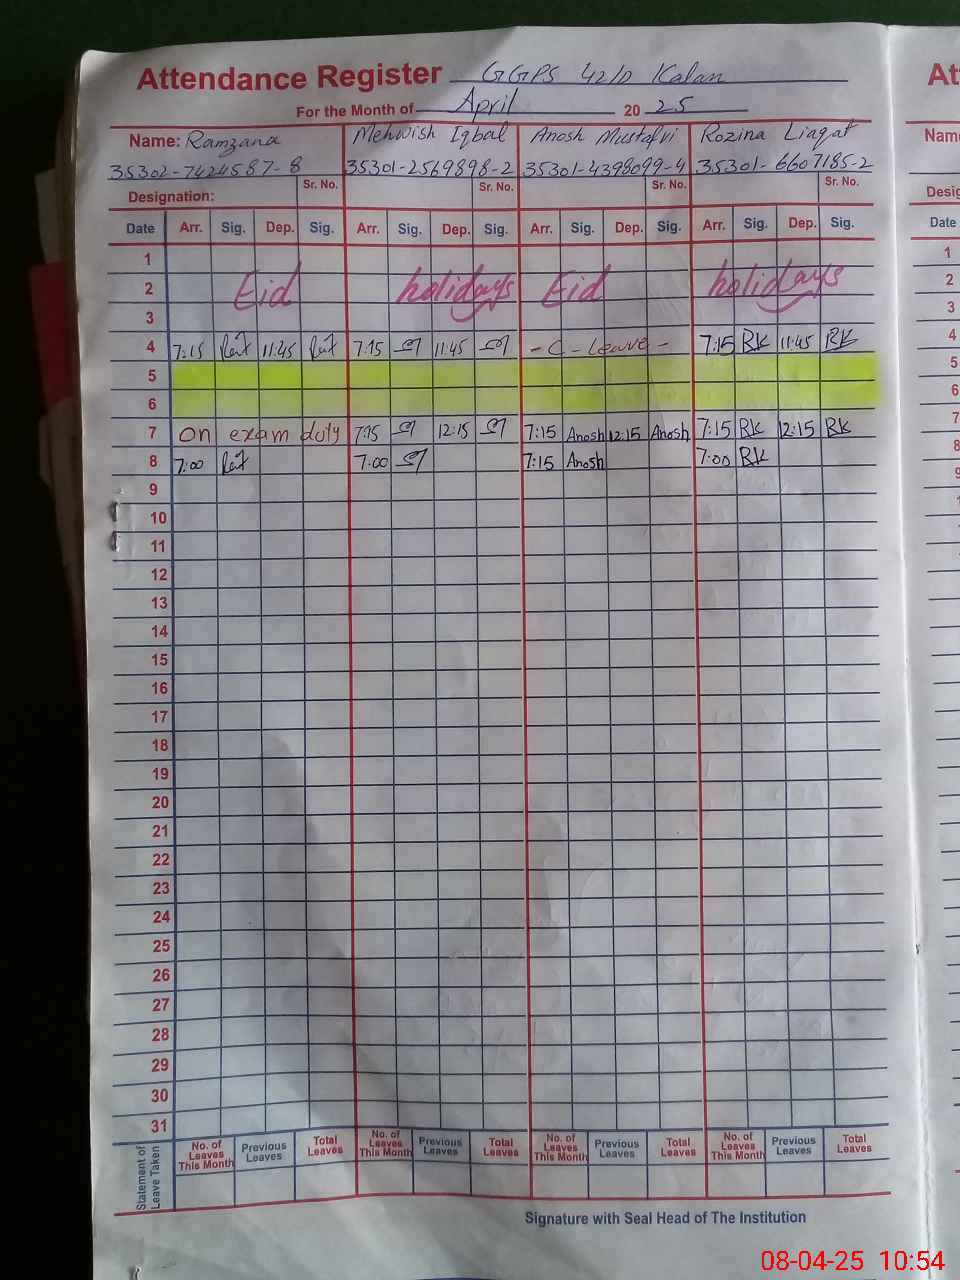 Attendance Register GGPS 42/D Kalan
For the Month of April 20 25
Name: Ramzana Mehwish Iqbal Anosh Mustafvi Rozina Liaqat
35302-7424587-8 35301-2569898-2 35301-4398099-4 35301-6607185-2
Designation: Sr. No. Sr. No. Sr. No. Sr. No.
Date Arr. Sig. Dep. Sig. Arr. Sig. Dep. Sig. Arr. Sig. Dep. Sig. Arr. Sig. Dep. Sig.
1
2 Eid holidays Eid holidays
3
4 7:15 11:45 7:15 11:45 - C - Leave - 7:15 RK 11:45 RK
5
6
7 On exam duty 7:15 12:15 7:15 Anosh 12:15 Anosh 7:15 RK 12:15 RK
8 7:00 7:00 7:15 Anosh 7:00 RK
9
10
11
12
13
14
15
16
17
18
19
20
21
22
23
24
25
26
27
28
29
30
31
Statement of Leave Taken
No. of Leaves This Month Previous Leaves Total Leaves No. of Leaves This Month Previous Leaves Total Leaves No. of Leaves This Month Previous Leaves Total Leaves No. of Leaves This Month Previous Leaves Total Leaves
Signature with Seal Head of The Institution
08-04-25 10:54
At
Name
Desig
Date
1
2
3
4
5
6
7
8
9